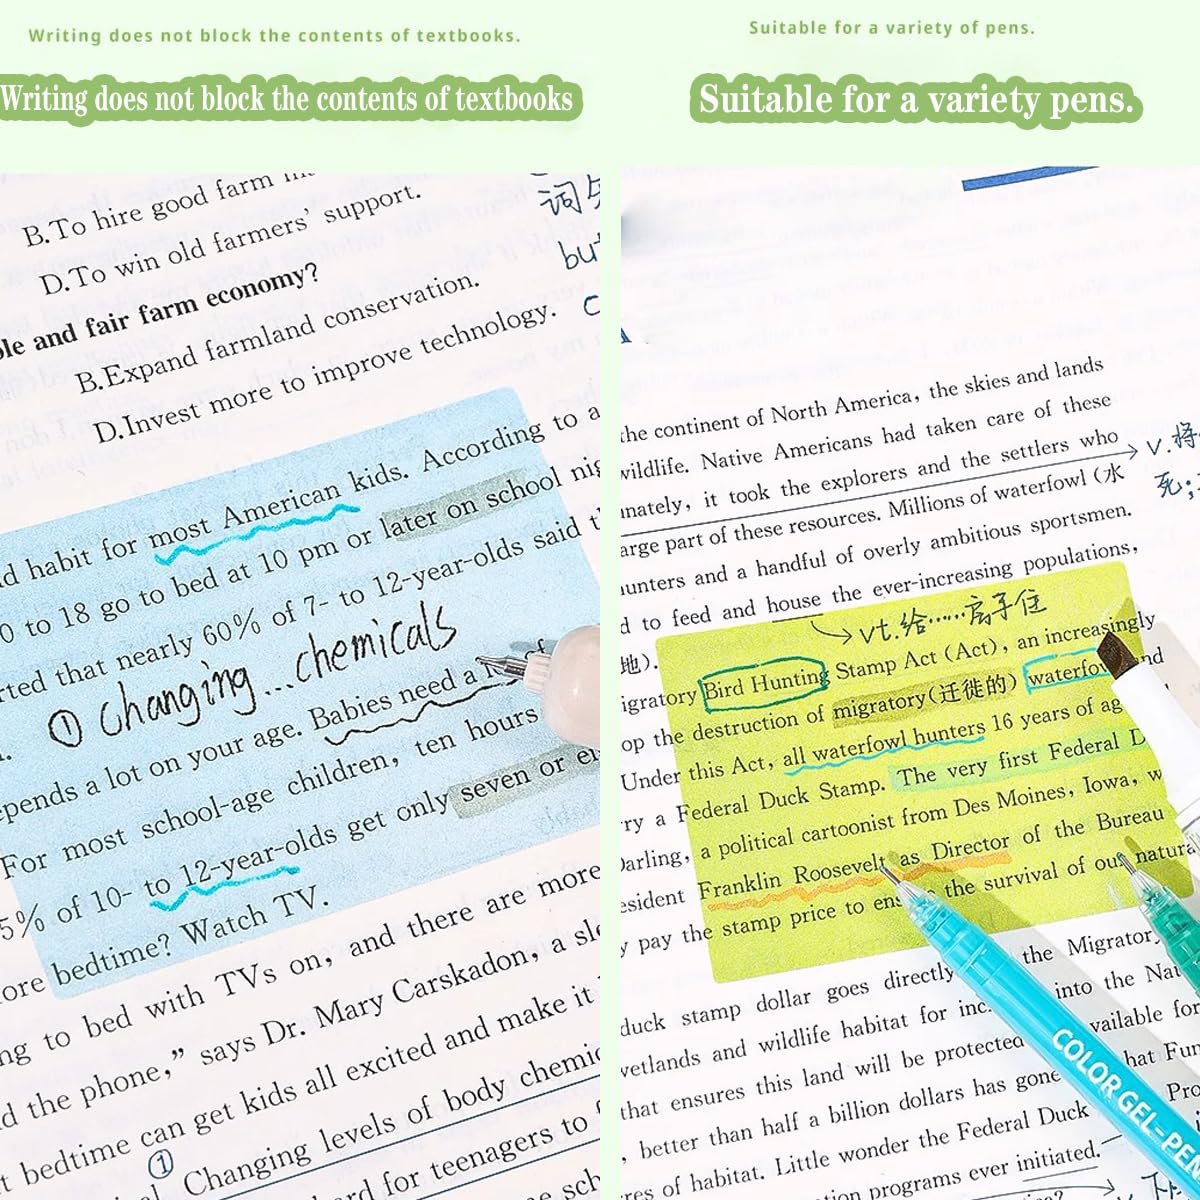 Writing does not block the contents of textbooks.
Suitable for a variety of pens.
Writing does not block the contents of textbooks
Suitable for a variety pens.
B.To hire good farm
D.To win old farmers' support.
and fair farm economy?
B.Expand farmland conservation.
D.Invest more to improve technology.
habit for most American kids. According to a
to 18 go to bed at 10 pm or later on school
that nearly 60% of 7- to 12-year-olds said
① Changing...chemicals
a lot on your age. Babies need a
For most school-age children, ten hours
5% of 10- to 12-year-olds get only seven or
bedtime? Watch TV.
to bed with TVs on, and there are more
the phone," says Dr. Mary Carskadon, a
bedtime can get kids all excited and make it
① Changing levels of body
for teenagers to
词
but
the continent of North America, the skies and lands
wildlife. Native Americans had taken care of these
it took the explorers and the settlers who
part of these resources. Millions of waterfowl (水
and a handful of overly ambitious sportsmen.
to feed and house the ever-increasing populations,
v.将
死;
vt.给……房子住
地).
Bird Hunting Stamp Act (Act), an increasingly
the destruction of migratory(迁徙的)
Under this Act, all waterfowl hunters 16 years of
a Federal Duck Stamp. The very first Federal
a political cartoonist from Des Moines, Iowa,
Franklin Roosevelt as Director of the Bureau
stamp price to the survival of
pay the
duck stamp dollar goes directly the Migratory
and wildlife habitat for into the
that ensures this land will be protected
better than half a billion dollars has gone
of habitat. Little wonder the Federal Duck
programs ever initiated.
COLOR GEL-PEN